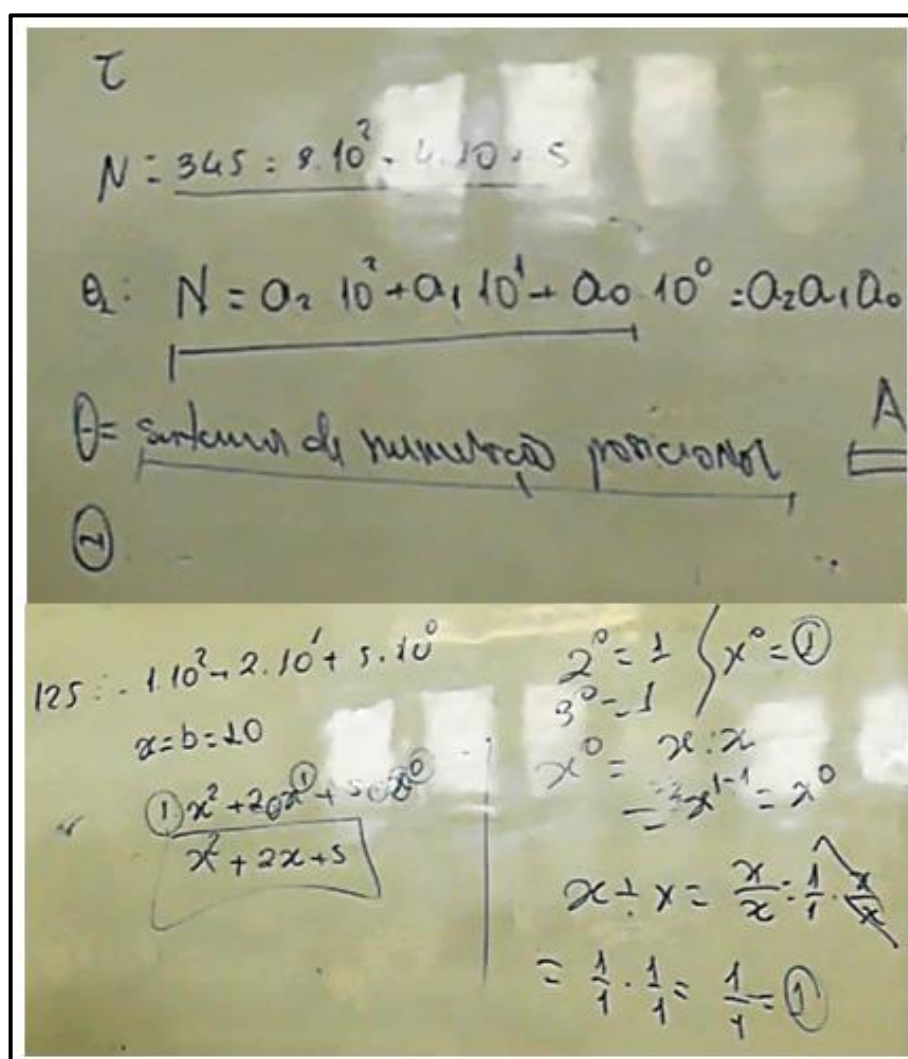 τ
N = 345 = 3.10² + 4.10 + 5
θ₁: N = a₂ 10² + a₁ 10¹ + a₀ 10⁰ = a₂a₁a₀
θ = sistema de numeração posicional A
125 = 1.10² + 2.10¹ + 5.10⁰
x = b = 10
① x² + 2.x¹ + 5.x⁰
x² + 2x + 5
2⁰ = 1
3⁰ = 1
x⁰ = ①
x⁰ = x : x
= x¹⁻¹ = x⁰
x ÷ x = x/x = 1/1 · x/x
= 1/1 · 1/1 = 1/1 = ①